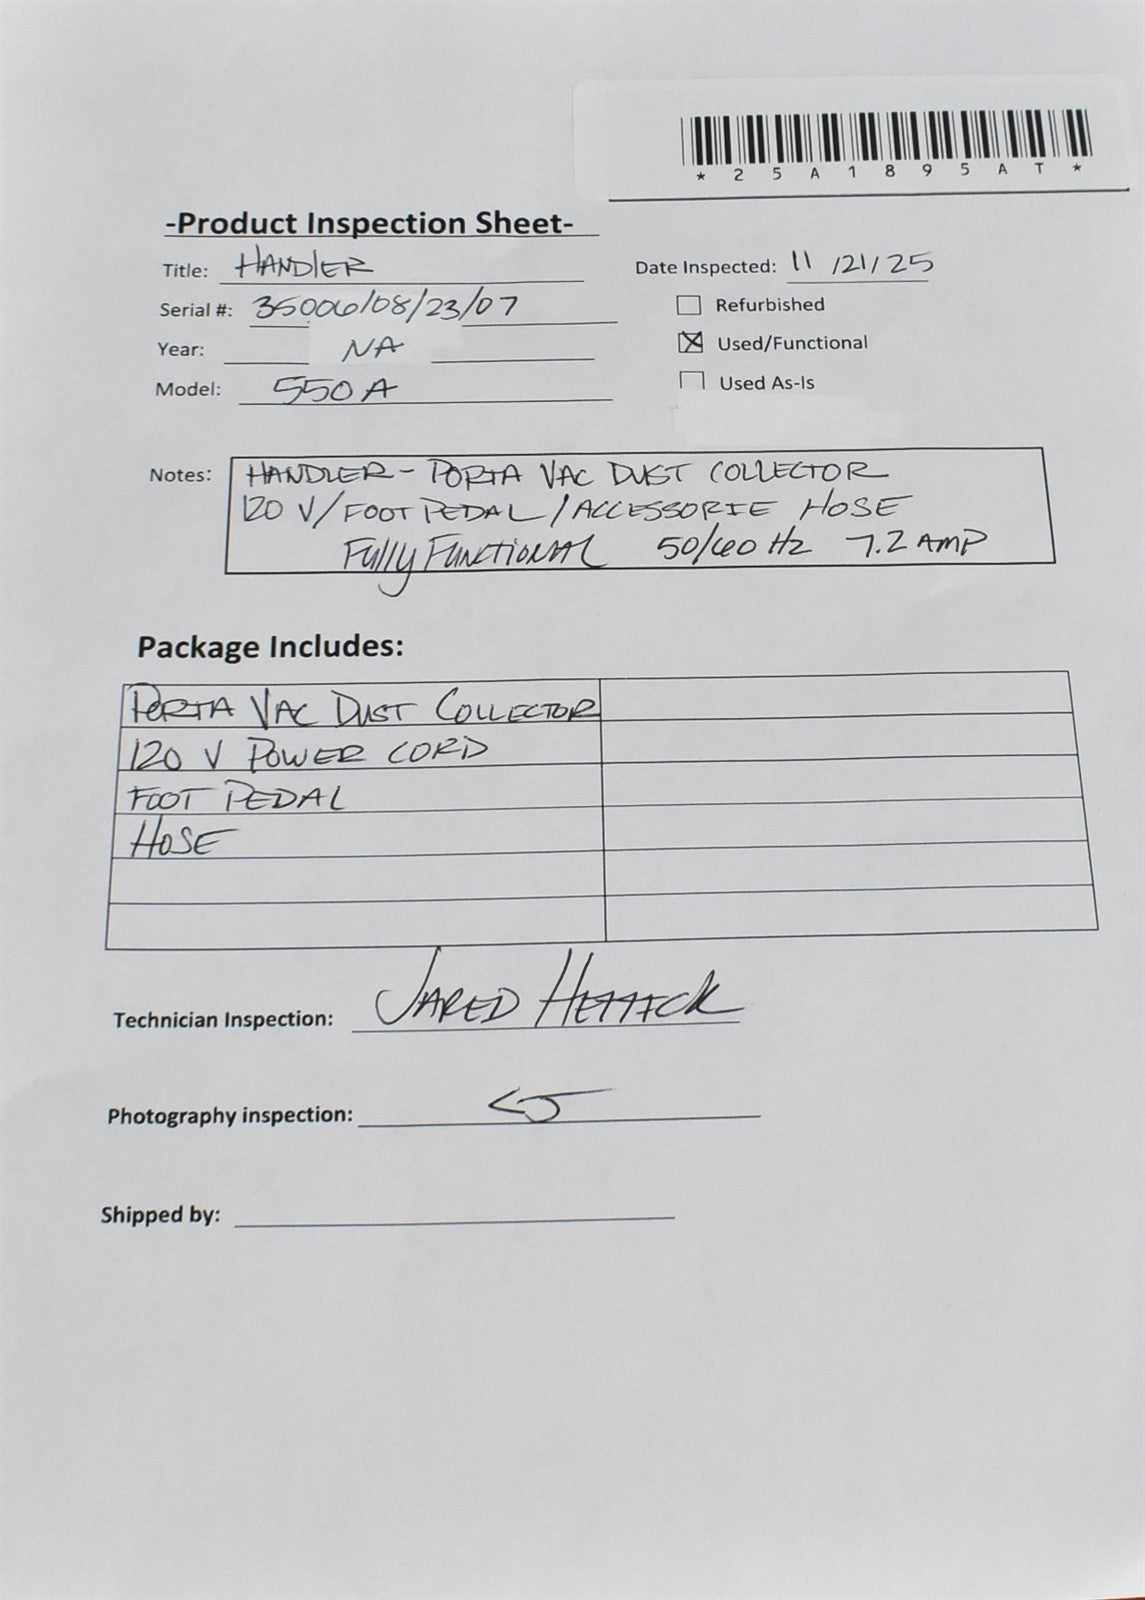 *25A1895AT*
-Product Inspection Sheet-
Title: HANDLER
Date Inspected: 11/21/25
Serial #: 35006/08/23/07
Refurbished
Year: NA
Used/Functional
Model: 550A
Used As-Is
Notes: HANDLER - PORTA VAC DUST COLLECTOR
120 V/FOOT PEDAL/ACCESSORIE HOSE
Fully Functional 50/60 Hz 7.2 AMP
Package Includes:
PORTA VAC DUST COLLECTOR
120 V POWER CORD
FOOT PEDAL
HOSE
Technician Inspection: JARED
Photography inspection:
Shipped by: